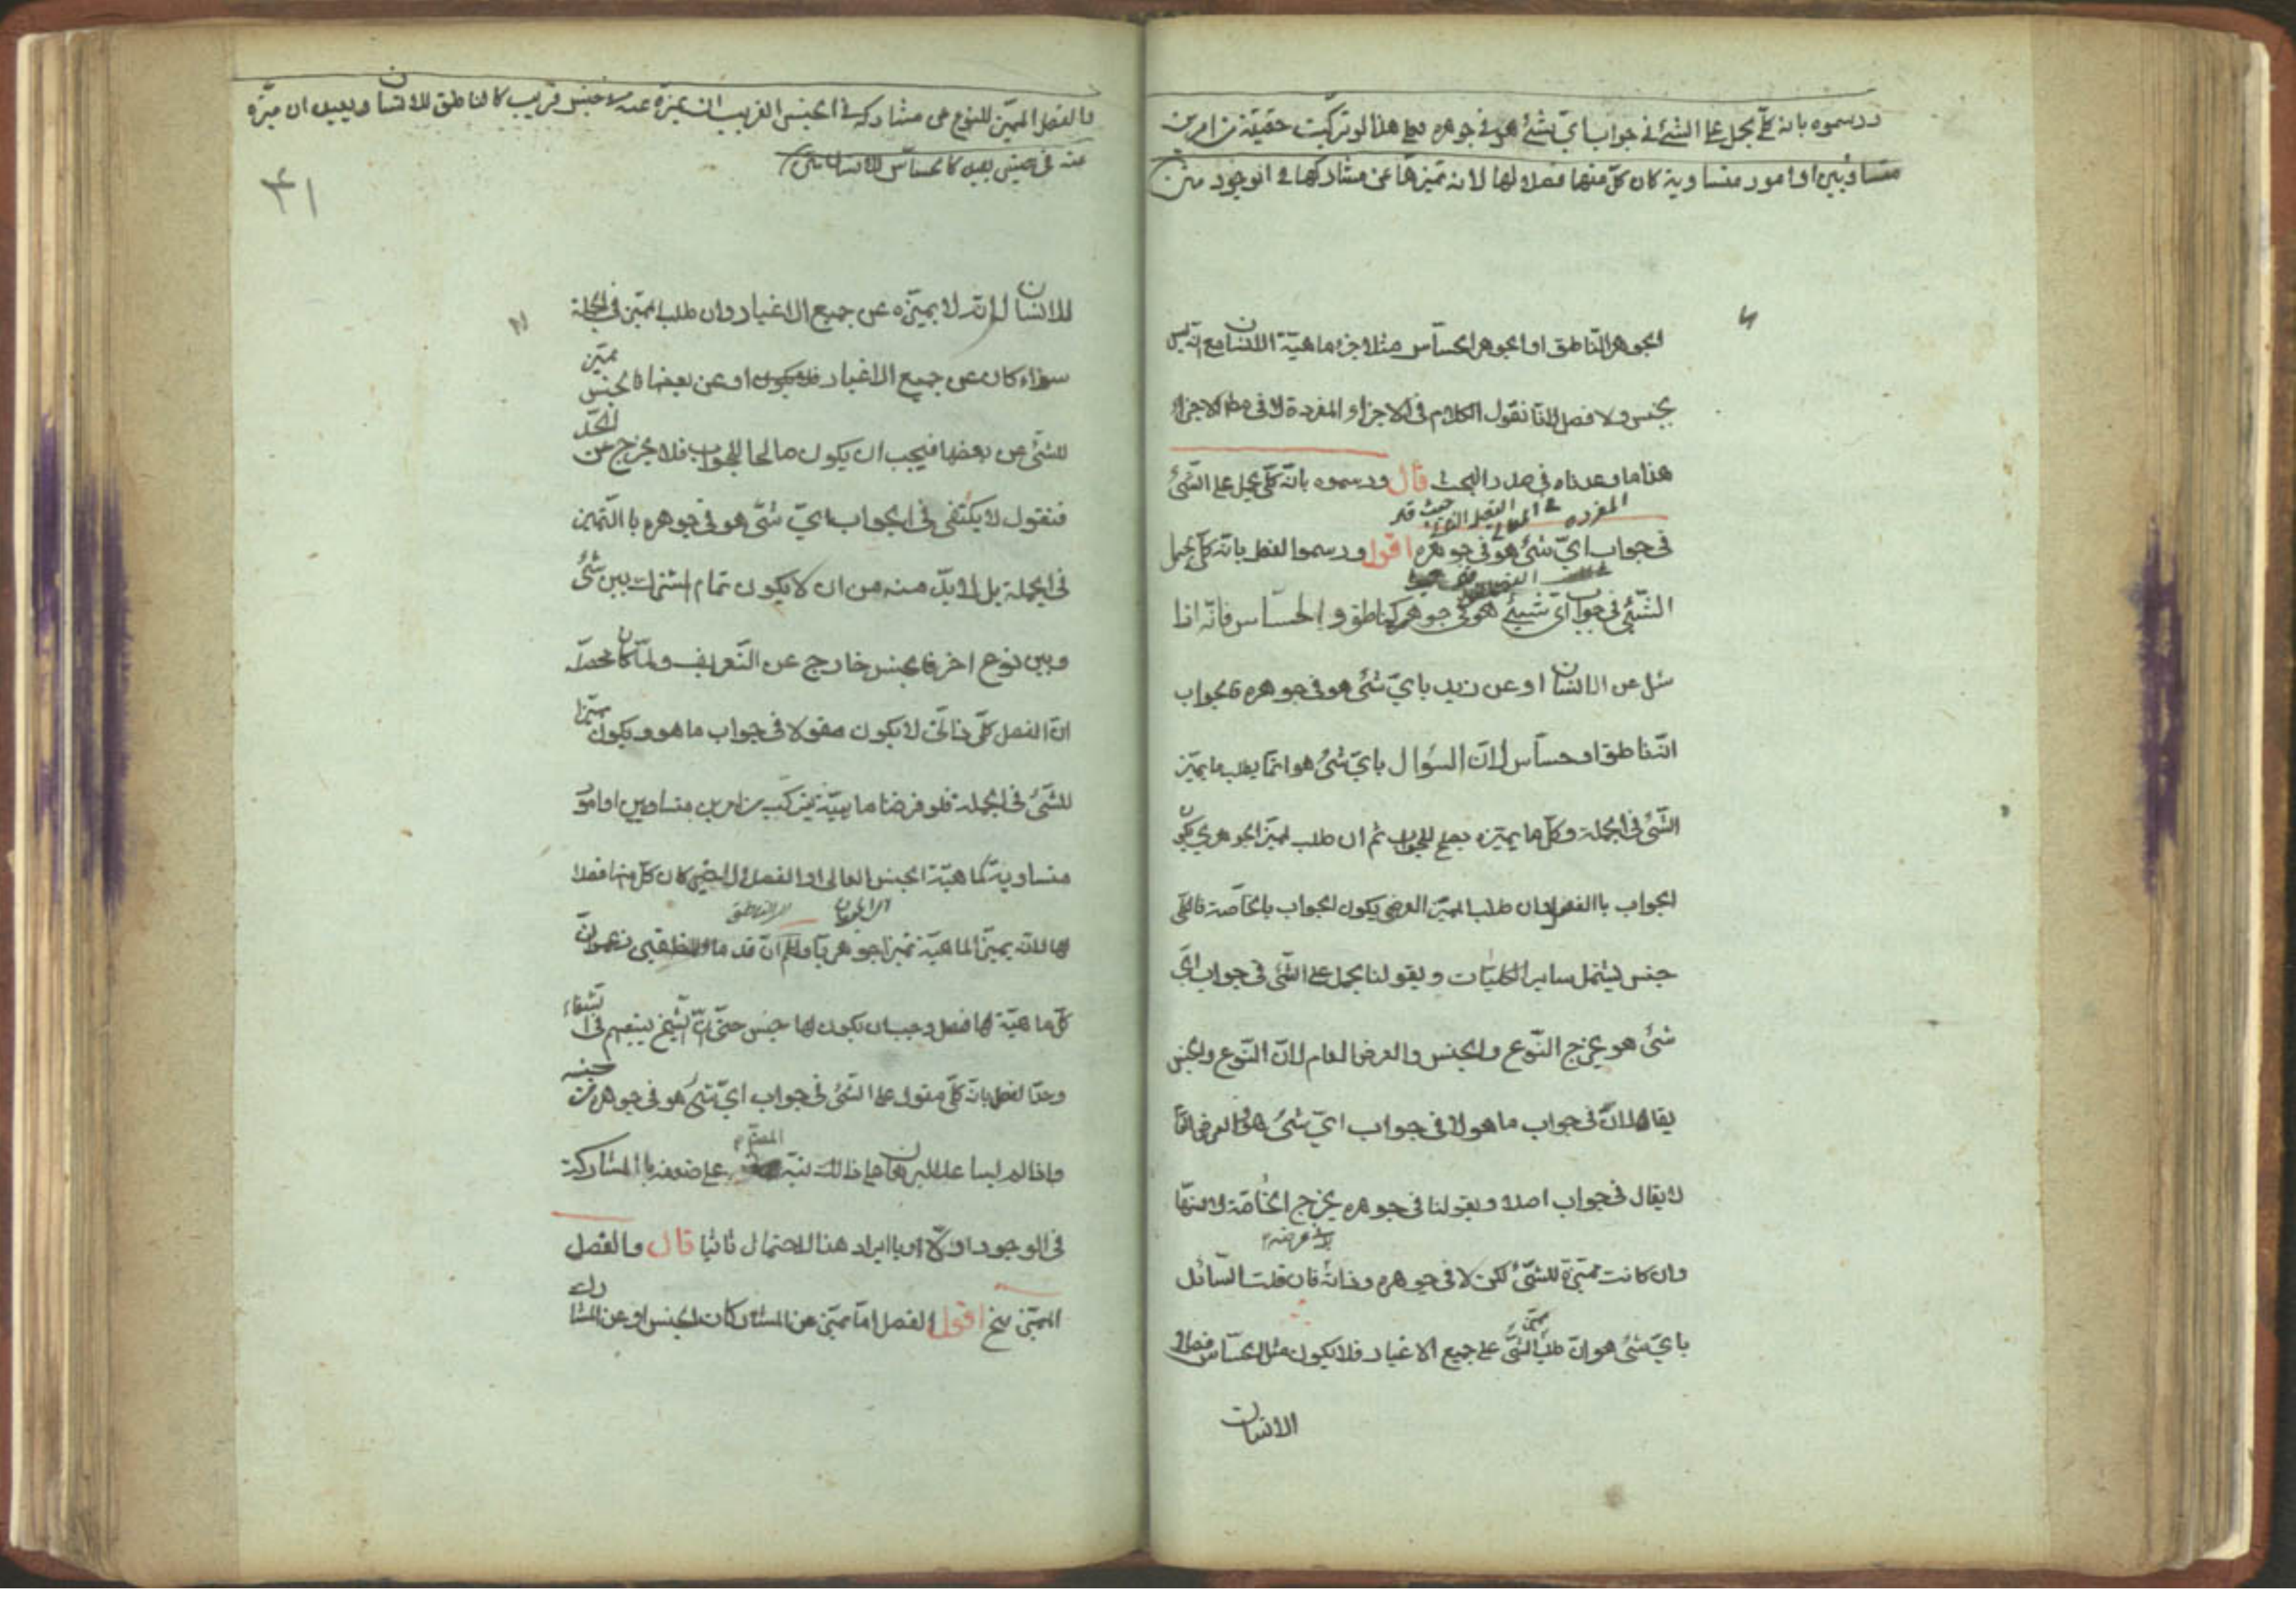 ورسموه بانه كلّي يحمل على الشئ في جواب ايّ شئ هو في جوهره فعلى هذا لو تركّبت حقيقة من امرين
متساويين او امور متساوية كان كلّ منها فصلا لها لانه تميزها عن مشاركها في الوجود متن
الجوهر النّاطق او الجوهر الحسّاس مثلا جزء ماهيّة الانسان مع انّه ليس
بجنس ولا فصل لانّا نقول الكلام في الاجزاء المفردة لا في مطلق الاجزاء
هذا ما وعدناه في صدر البحث قال ورسموه بانّه كلّي يحمل على الشّئ
المفرده
في جواب ايّ شئ هو في جوهره اقول ورسموا الفصل بانّه كلّي يحمل
الشّئ في جواب ايّ شيئ هو في جوهره كالناطق والحسّاس فانّه اذا
سئل عن الانسان او عن زيد بايّ شئ هو في جوهره فالجواب
انّه ناطق او حسّاس لانّ السّؤال بايّ شئ هو انّما يطلب ما يميّز
الشّئ في الجملة وكلّ ما يميّزه يصلح للجواب ثم ان طلب المميّز الجوهري يكون
الجواب بالفصل وان طلب المميّز العرضي يكون الجواب بالخاصّة فالكلّي
جنس يشتمل ساير الكليّات وبقولنا يحمل على الشّئ في جواب ايّ
شئ هو يخرج النّوع والجنس والعرض العام لانّ النّوع والجنس
يقالان في جواب ما هو لا في جواب ايّ شئ هو والعرض العامّ
لا يقال في جواب اصلا وبقولنا في جوهره يخرج الخاصّة لانها
وان كانت مميّزة للشّئ لكن لا في جوهره وذاته فان قلت السّائل
بل في عرضه
بايّ شئ هو ان طلب مميّز الشّئ على جميع الاغيار فلا يكون مثل الحسّاس فصلا
الانسان
فالفصل المميّز للنوع عن مشاركه في الجنس القريب ان ميزه عنه في جنس قريب كالناطق للانسان وبعيد ان ميّزه
عنه في جنس بعيد كالحسّاس للانسان متن
٣١
للانسان لانّه لا يميّزه عن جميع الاغيار وان طلب المميّز في الجملة
سواء كان عن جميع الاغيار او عن بعضها فالجنس مميّز
للشّئ عن بعضها فيجب ان يكون صالحا للجواب فلا يخرج عن الحدّ
فنقول لا يكتفى في الجواب ايّ شئ هو في جوهره بالتّميز
في الجملة بل لا بدّ منه من ان لا يكون تمام المشترك بين شئ
وبين نوع اخر فالجنس خارج عن التّعريف ولمّا كان محصّله
انّ الفصل كلّي ذاتي لا يكون مقولا في جواب ما هو ويكون مميّزا
للشّئ في الجملة فلو فرضنا ماهيّة يتركّب من امرين متساويين او امور
متساوية كماهيّة الجنس العالي او الفصل الاخير كان كلّ منها فصلا
لها لانّه يميّز الماهيّة تميزا جوهريّا واعلم انّ قدماء المنطقيين زعموا انّ
كلّ ماهيّة لها فصل وجب ان يكون لها جنس حتّى انّ الشّيخ يتبعهم في الشفاء
وحدّ الفصل بانّه كلّي مقول على الشّئ في جواب ايّ شئ هو في جوهره من جنسه
واذا لم يساعد البرهان على ذلك نبّه المصنّف على ضعفه بالمشاركة
في الوجود اوّلا وبايراد هذا الاحتمال ثانيا قال والفصل
المميّز الخ اقول الفصل امّا مميّز عن المشارك الجنس او عن المشارك